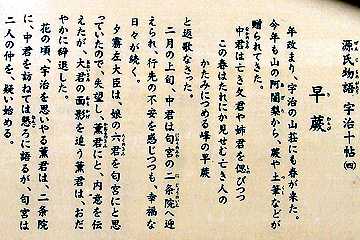 源氏物語 宇治十帖 (四)
早蕨
年改まり、宇治の山荘にも春が来た。
今年も山の阿闍梨から、蕨や土筆などが
贈られてきた。
中君は亡き父君や姉君を偲びつつ
この春はたれにか見せむ亡き人の
かたみにつめる峰の早蕨
と返歌なさった。
二月の上旬、中君は匂宮の二条院へ迎
えられ、行先の不安を感じつつも、幸福な
日々が続く。
夕霧左大臣は、娘の六の君を匂宮にと思
っていたので、失望し、薫君にと、内意を伝
えたが、大君の面影を追う薫君は、おだ
やかに辞退した。
花の頃、宇治を思いやる薫君は、二条院
に、中君を訪ねては懇ろに語るが、匂宮は
二人の仲を、疑い始める。